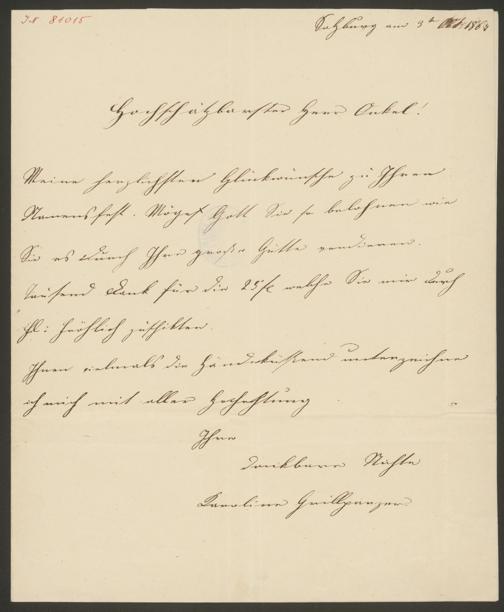 I.N. 81015
Salzburg am 3t Okt. 186
Hochschätzbarster Herr Onkel!
Meine herzlichsten Glückwünsche zu Ihren
Namensfest. Möge Gott Sie so belohnen wie
Sie es durch Ihre große Gütte verdienen.
Tausend Dank für die 25 f welche Sie mir durch
Frl: Fröhlich zuschikten.
Ihnen vielmals die Hände küssend unterzeichne
ich mich mit aller Hochachtung
Ihre
dankbare Nichte
Karoline Grillparzer